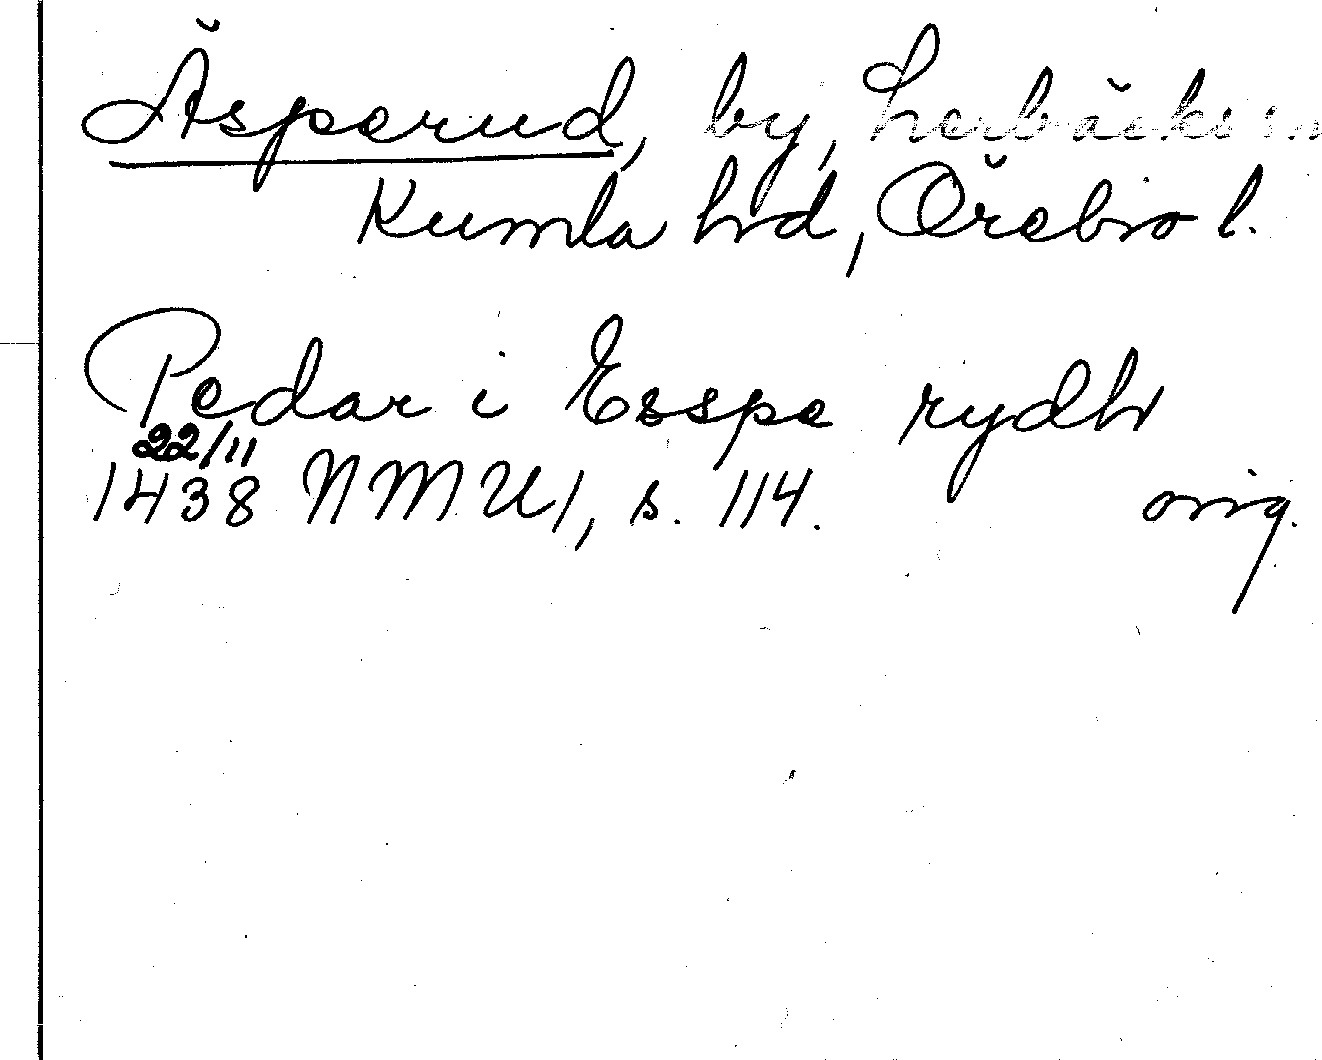 Äsperud, by, Lerbäcks sn
Kumla hrd, Örebro l.
Pedar i Esspe rydh
22/11
1438 NMU 1, s. 114. orig.